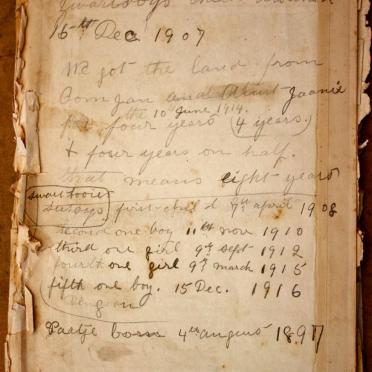 16th Dec 1907
We got the land from
Oom Jan and Jaanie
the 10 June 1914.
for four years (4 years.)
+ four years on half.
that means eight years
first child 9th april 1908
second one boy 11th nov 1910
third one girl 9th Sept 1912
fourth one girl 9th march 1915
fifth one boy. 15 Dec. 1916
Paatje born 4th augus 1897